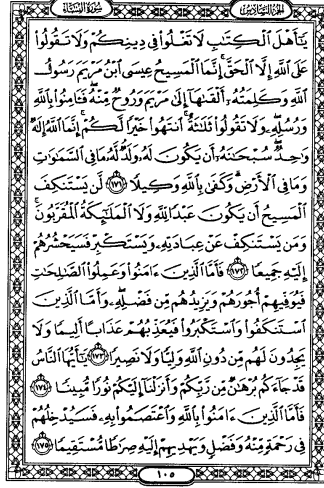 الجزء السادس سورة النساء
يَٰٓأَهْلَ ٱلْكِتَٰبِ لَا تَغْلُوا۟ فِى دِينِكُمْ وَلَا تَقُولُوا۟
عَلَى ٱللَّهِ إِلَّا ٱلْحَقَّ ۚ إِنَّمَا ٱلْمَسِيحُ عِيسَى ٱبْنُ مَرْيَمَ رَسُولُ
ٱللَّهِ وَكَلِمَتُهُۥٓ أَلْقَىٰهَآ إِلَىٰ مَرْيَمَ وَرُوحٌ مِّنْهُ ۖ فَـَٔامِنُوا۟ بِٱللَّهِ
وَرُسُلِهِۦ ۖ وَلَا تَقُولُوا۟ ثَلَٰثَةٌ ۚ ٱنتَهُوا۟ خَيْرًا لَّكُمْ ۚ إِنَّمَا ٱللَّهُ إِلَٰهٌ
وَٰحِدٌ ۖ سُبْحَٰنَهُۥٓ أَن يَكُونَ لَهُۥ وَلَدٌ ۘ لَّهُۥ مَا فِى ٱلسَّمَٰوَٰتِ
وَمَا فِى ٱلْأَرْضِ ۗ وَكَفَىٰ بِٱللَّهِ وَكِيلًا ١٧١ لَّن يَسْتَنكِفَ
ٱلْمَسِيحُ أَن يَكُونَ عَبْدًا لِّلَّهِ وَلَا ٱلْمَلَٰٓئِكَةُ ٱلْمُقَرَّبُونَ ۚ
وَمَن يَسْتَنكِفْ عَنْ عِبَادَتِهِۦ وَيَسْتَكْبِرْ فَسَيَحْشُرُهُمْ
إِلَيْهِ جَمِيعًا ١٧٢ فَأَمَّا ٱلَّذِينَ ءَامَنُوا۟ وَعَمِلُوا۟ ٱلصَّٰلِحَٰتِ
فَيُوَفِّيهِمْ أُجُورَهُمْ وَيَزِيدُهُم مِّن فَضْلِهِۦ ۖ وَأَمَّا ٱلَّذِينَ
ٱسْتَنكَفُوا۟ وَٱسْتَكْبَرُوا۟ فَيُعَذِّبُهُمْ عَذَابًا أَلِيمًا وَلَا
يَجِدُونَ لَهُم مِّن دُونِ ٱللَّهِ وَلِيًّا وَلَا نَصِيرًا ١٧٣ يَٰٓأَيُّهَا ٱلنَّاسُ
قَدْ جَآءَكُم بُرْهَٰنٌ مِّن رَّبِّكُمْ وَأَنزَلْنَآ إِلَيْكُمْ نُورًا مُّبِينًا ١٧٤
فَأَمَّا ٱلَّذِينَ ءَامَنُوا۟ بِٱللَّهِ وَٱعْتَصَمُوا۟ بِهِۦ فَسَيُدْخِلُهُمْ
فِى رَحْمَةٍ مِّنْهُ وَفَضْلٍ وَيَهْدِيهِمْ إِلَيْهِ صِرَٰطًا مُّسْتَقِيمًا ١٧٥
١٠٥